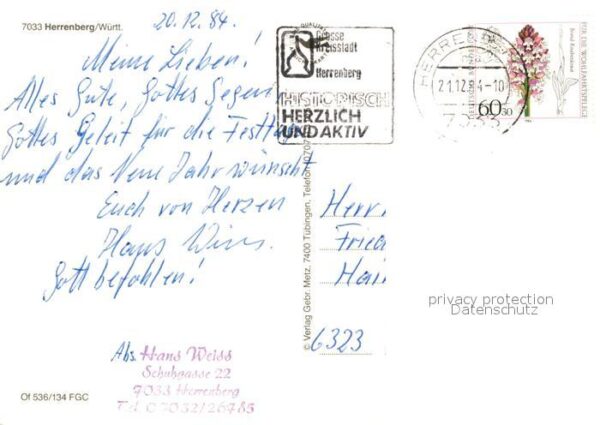 7033 Herrenberg/Württ.
20.12.84.
Meine Lieben!
Alles Gute, Gottes Segen,
Gottes Geleit für die Festtage
und das Neue Jahr wünscht
Euch von Herzen
Hans
Gott befohlen!
Abs. Hans Weiss
Schuhgasse 22
7033 Herrenberg
Tel. 07032/26785
Of 536/134 FGC
© Verlag Gebr. Metz, 7400 Tübingen, Telefon (0707
Grosse
Kreisstadt
Herrenberg
HISTORISCH
HERZLICH
UND AKTIV
HERRENB
21.12.84-10
7033
60+30
FÜR DIE WOHLFAHRTSPFLEGE
Herr
Fried
Hai
6323
privacy protection
Datenschutz